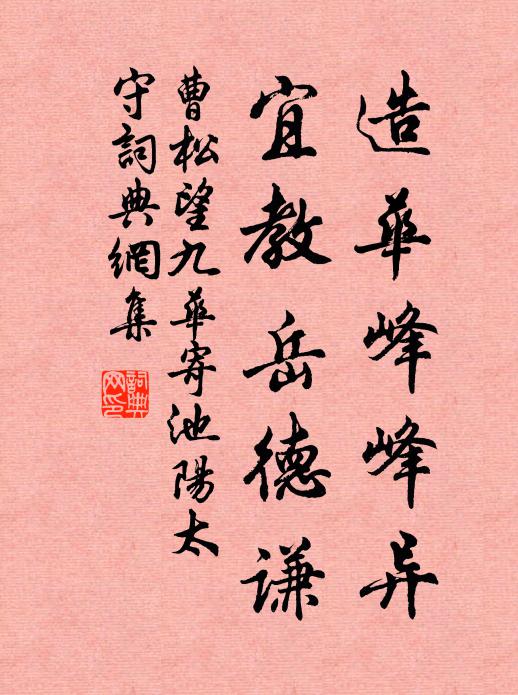 造華峰峰异
宜教岳德謙
曹松望九華寄池陽太
守詞典網集
詞典网印